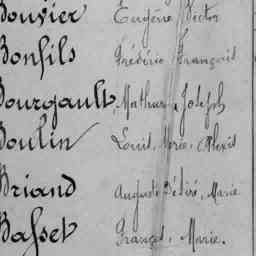 Bouvier Eugène Victor
Bonfils Frédéric François
Bourgault Mathurin Joseph
Boulin Louis, Marie, Alexis
Briand Auguste Désiré, Marie
Basset François, Marie.